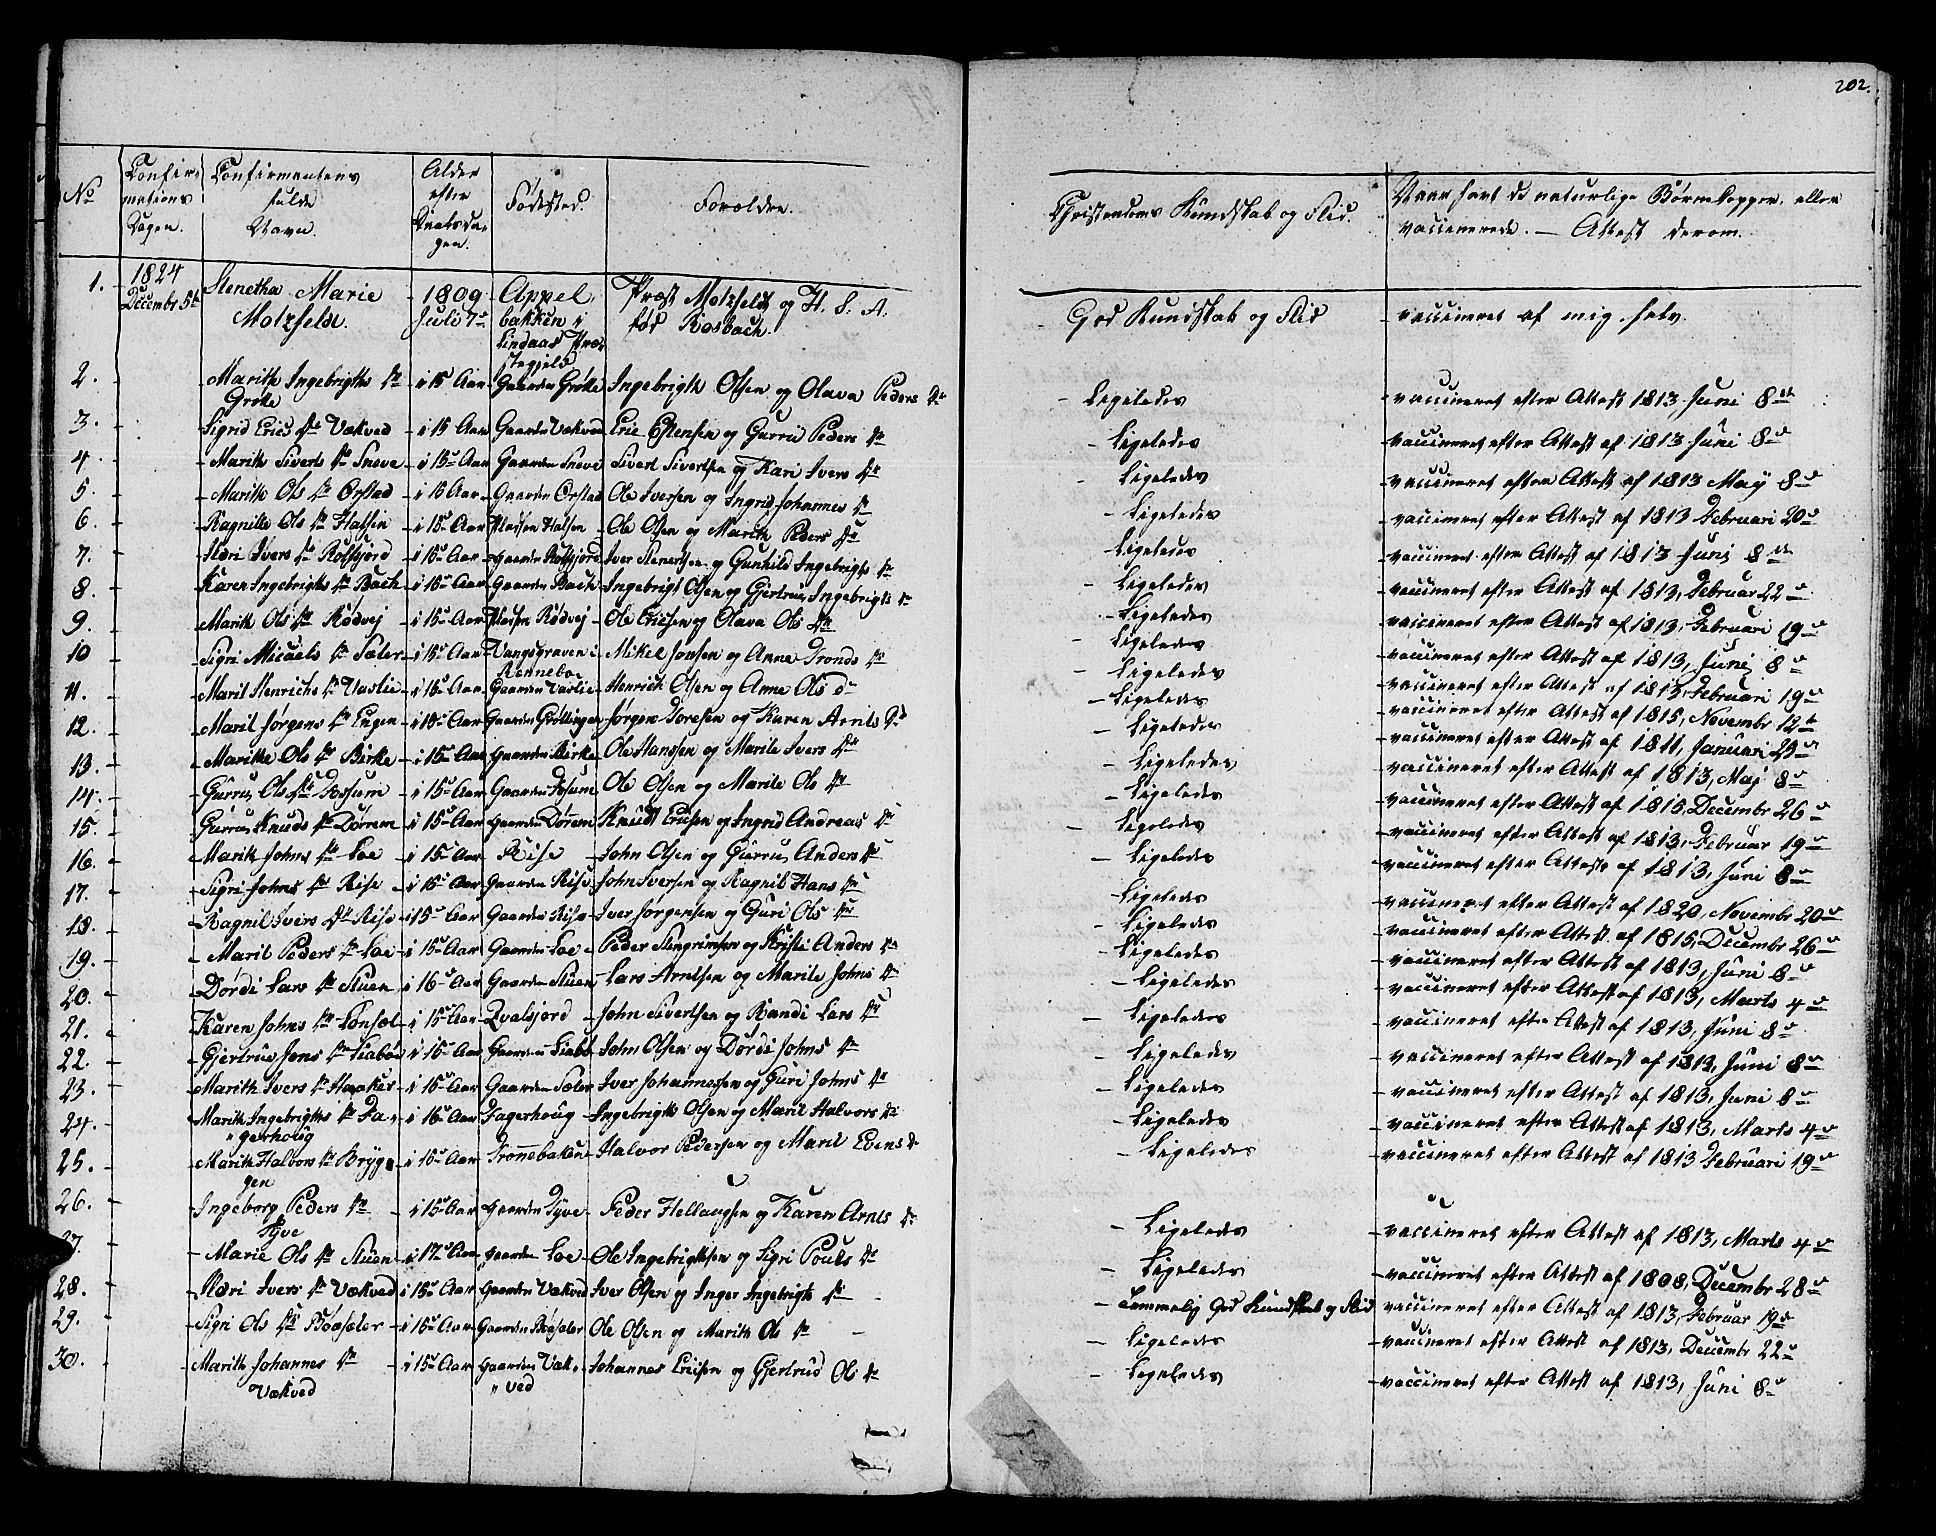 202.
No
Confir-
mations
Dagen.
Confirmantens
fulde
Navn.
Alder
efter
Daabsda-
gen.
Fødested.
Forældre.
Christendoms Kundskab og Flid.
Naar havt de naturlige Børnekopper, eller
vaccinerede. — Attest derom.
1. 1824 Decembr 5te Stenetha Marie Motzfeldt. 1809 Juli 7de Appelbakken i Lindaas Præstegjeld Præst Motzfeldt og H. S. A. fød Rosbach God Kundskab og Flid vaccineret af mig selv.
2. Marith Ingebrigths Dr Grøtte i 15 Aar Gaarden Grøtte Ingebrigth Olsen og Olava Peders Dr Ligeledes vaccineret efter Attest 1813 Juni 8de
3. Sigrid Erics Dr Vækved i 15 Aar Gaarden Vækved Eric Estensen og Gurru Peders Dr Ligeledes vaccineret efter Attest af 1813 Juni 8de
4. Marith Siverts Dr Sneve i 15de Aar Gaarden Sneve Sivert Sivertsen og Kari Ivers Dr Ligeledes vaccineret efter Attest af 1813 May 8de
5. Marith Ols Dr Ørstad i 15 Aar Gaarden Ørstad Ole Iversen og Ingrid Johannes Dr Ligeledes vaccineret efter Attest af 1813 Februari 20de
6. Ragnille Ols Dr Halsen i 15de Aar Pladsen Halsen Ole Olsen og Marith Peders Dr Ligeledes vaccineret efter Attest af 1813 Juni 8de
7. Ildri Ivers Dr Rolfsjord i 15de Aar Gaarden Rolfsjord Iver Stenersen og Gunhild Ingebrigts Dr Ligeledes vaccineret efter Attest af 1813, Februar 22de
8. Karen Ingebrigths Dr Bach i 16de Aar Gaarden Bach Ingebrigt Olsen og Gjertrud Ingebrigts Dr Ligeledes vaccineret efter Attest af 1813, Februari 19de
9. Marith Ols Dr Rødvej i 15de Aar Pladsen Rødvej Ole Ericsen og Olava Ols Dr Ligeledes vaccineret efter Attest af 1813, Juni 8de
10 Sigri Micaels Dr Sæter i 15de Aar Vangsgraven i Rennebo Mikel Jonsen og Anne Tronds Dr Ligeledes vaccineret efter Attest af 1813, Februari 19de
11. Marit Henrichs Dr Vaslie i 15de Aar Gaarden Vaslie Henrich Olsen og Anne Ols Dr Ligeledes vaccineret efter Attest af 1815, Novembr 12te
12. Marit Jørgens Dr Engen i 18de Aar Gaarden Jørgen Toresen og Karen Arnts Dr Ligeledes vaccineret efter Attest af 1811, Januari 23de
13. Marithe Ols Dr Birke i 15de Aar Gaarden Birke Ole Hanssen og Marile Ivers Dr Ligeledes vaccineret efter Attest af 1813, Maj 8de
14. Gurru Ols Dr Aosum i 15de Aar Gaarden Aosum Ole Olsen og Marile Ols Dr Ligeledes vaccineret efter Attest af 1815, Decembr 26de
15. Gurru Knuds Dr Dørrem i 15de Aar Gaarden Dørrem Knudt Ericsen og Ingrid Andreas Dr Ligeledes vaccineret efter Attest af 1813, Februar 19de
16. Marith Johns Dr Loe i 15de Aar Rise John Olsen og Gurru Anders Dr Ligeledes vaccineret efter Attest af 1813, Juni 8de
17. Sigri Johns Dr Rise i 16de Aar Gaarden Rise John Iversen og Ragnil Hans Dr Ligeledes vaccineret efter Attest af 1820, Novembr 20de
18. Ragnil Ivers Dr Rise i 15de Aar Gaarden Rise Iver Jørgensen og Guri Ols Dr Ligeledes vaccineret efter Attest af 1815, Decembr 26de
19. Marit Peders Dr Loe i 15de Aar Gaarden Loe Peder Stengrimsen og Kristi Anders Dr Ligeledes vaccineret efter Attest af 1813, Juni 8de
20. Dørdi Lars Dr Stuen i 16de Aar Gaarden Stuen Lars Arntsen og Marile Johns Dr Ligeledes vaccineret efter Attest af 1813, Marts 4de
21. Karen Johns Dr i 15de Aar Qvalsjord John Sivertsen og Randi Lars Dr Ligeledes vaccineret efter Attest af 1813, Juni 8de
22. Gjertrud Jons Dr Liabøe i 16de Aar Gaarden Liabø John Olsen og Dørdi Johns Dr Ligeledes vaccineret efter Attest af 1813, Juni 8de
23. Marith Ivers Dr Haaker i 16de Aar Gaarden Sæter Iver Johannessen og Guri Johns Dr Ligeledes vaccineret efter Attest af 1813, Juni 8de
24. Marith Ingebrigths Dr Fagerhoug i 16de Aar Fagerhoug Ingebrigth Olsen og Marit Halvors Dr Ligeledes vaccineret efter Attest af 1813, Marts 4de
25. Marith Halvors Dr Bryggen i 16de Aar Trønnebaken Halvor Pedersen og Marit Evens Dr Ligeledes vaccineret efter Attest af 1813 Februari 19de
26. Ingeborg Peders Dr Tyve i 15de Aar Gaarden Tyve Peder Hellaugsen og Karen Arnts Dr Ligeledes vaccineret efter Attest af 1813, Marts 4de
27. Marie Ols Dr Stuen i 17de Aar Gaarden Loe Ole Ingebrigtsen og Sigri Pouls Dr Ligeledes vaccineret efter Attest af 1808, Decembr 28de
28. Ildri Ivers Dr Vækved i 15de Aar Gaarden Vækved Iver Olsen og Inger Ingebrigts Dr Temmelig God Kundskab og Flid vaccineret efter Attest af 1813, Februar 19de
29. Sigri Ols Dr Bøesæter i 15de Aar Gaarden Bøesæter Ole Olsen og Marith Ols Dr Ligeledes vaccineret efter Attest af 1813, Decembr 22de
30. Marith Johannes Dr Vækved i 15de Aar Gaarden Vækved Johannes Ericsen og Gjertrud Ols Dr Ligeledes vaccineret efter Attest af 1813, Juni 8de